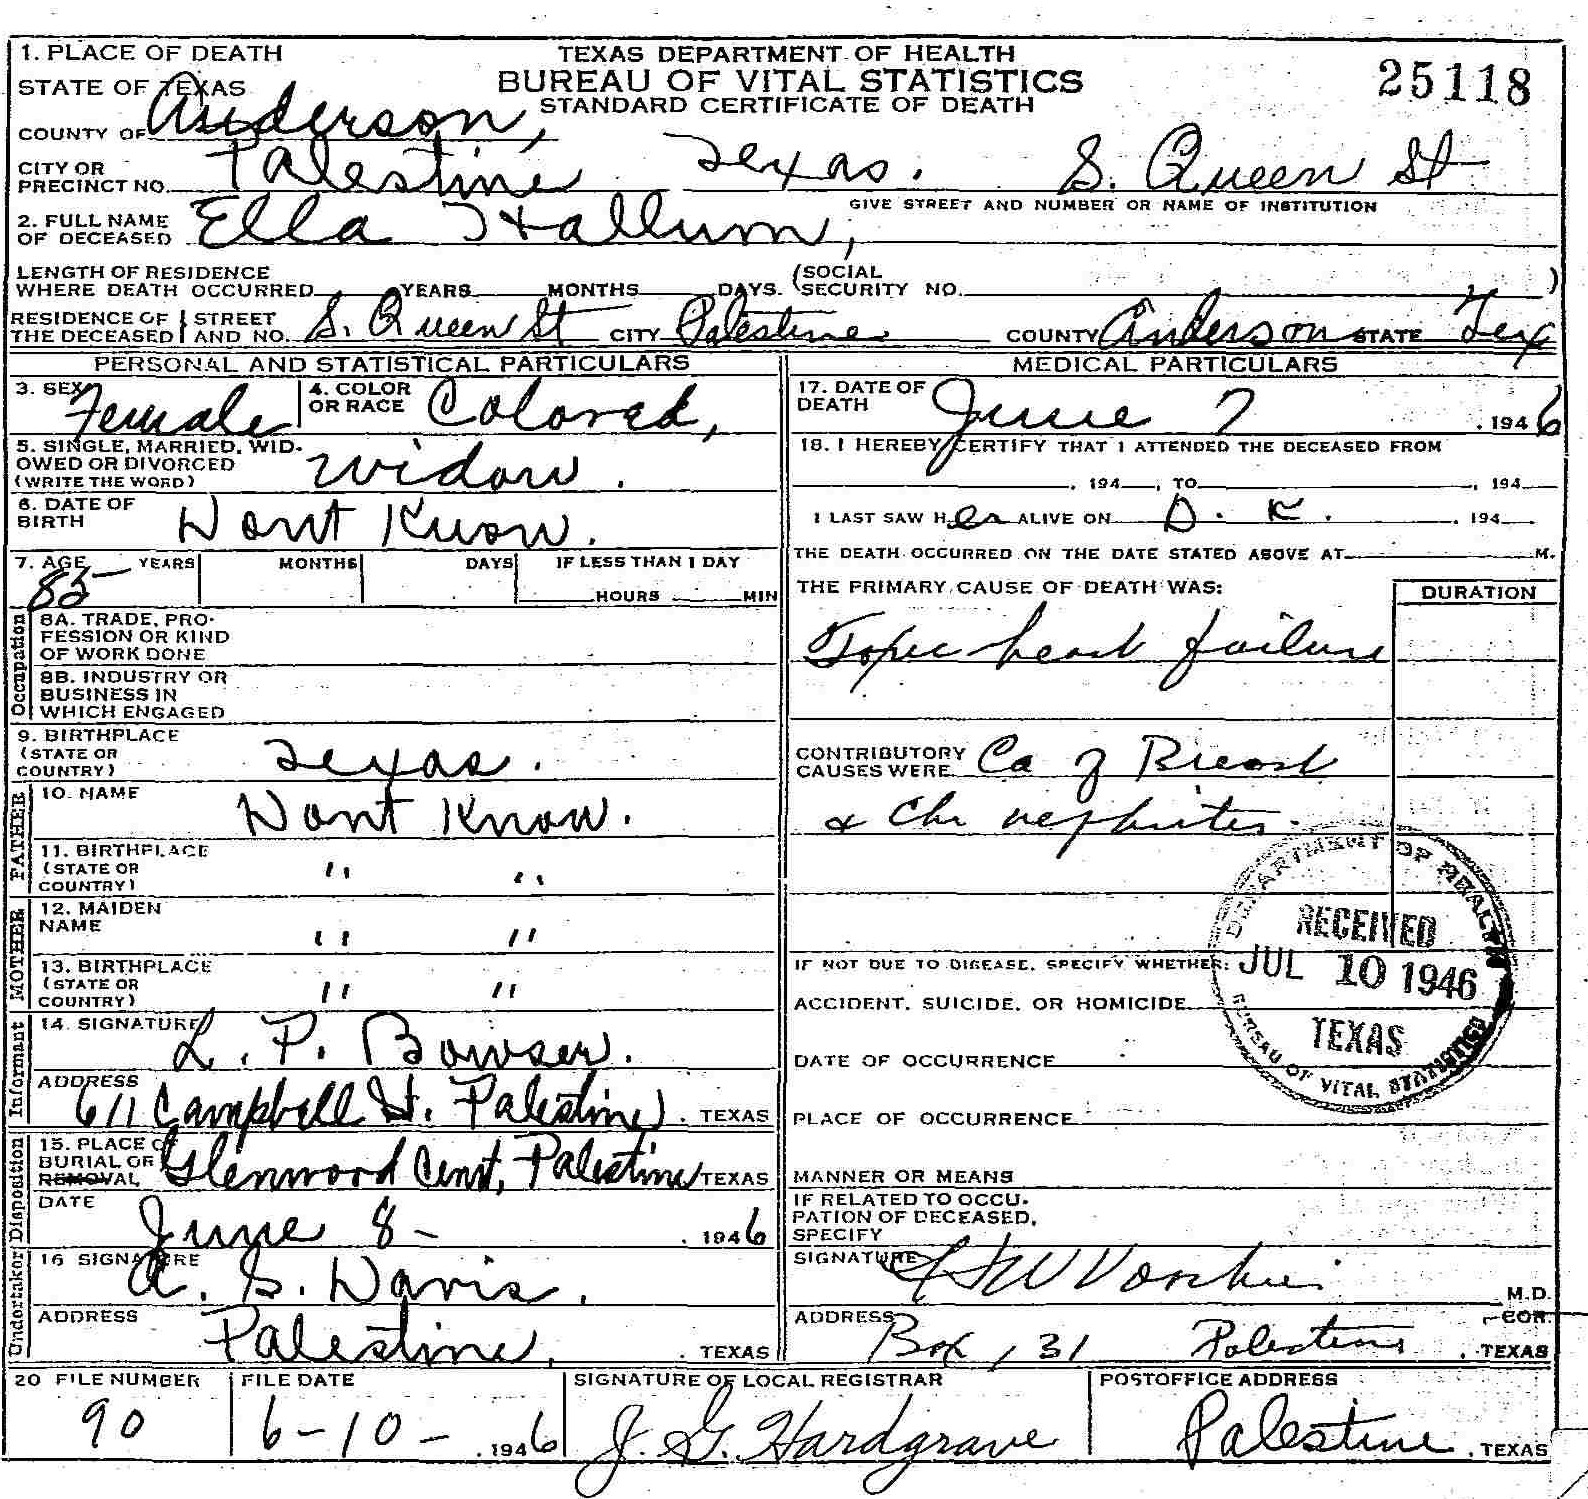 1. PLACE OF DEATH
TEXAS DEPARTMENT OF HEALTH
BUREAU OF VITAL STATISTICS
STANDARD CERTIFICATE OF DEATH
25118
STATE OF TEXAS
COUNTY OF Anderson,
CITY OR PRECINCT NO. Palestine Texas. S. Queen St
GIVE STREET AND NUMBER OR NAME OF INSTITUTION
2. FULL NAME OF DECEASED Ella Hallum,
LENGTH OF RESIDENCE WHERE DEATH OCCURRED YEARS MONTHS DAYS. (SOCIAL SECURITY NO. )
RESIDENCE OF THE DECEASED STREET AND NO. S. Queen St CITY Palestine COUNTY Anderson STATE Tex
PERSONAL AND STATISTICAL PARTICULARS
3. SEX Female 4. COLOR OR RACE Colored,
5. SINGLE, MARRIED, WIDOWED OR DIVORCED (WRITE THE WORD) Widow.
6. DATE OF BIRTH Dont Know.
7. AGE 85 YEARS MONTHS DAYS IF LESS THAN 1 DAY HOURS MIN
Occupation
8A. TRADE, PROFESSION OR KIND OF WORK DONE
8B. INDUSTRY OR BUSINESS IN WHICH ENGAGED
9. BIRTHPLACE (STATE OR COUNTRY) Texas.
FATHER
10. NAME Dont Know.
11. BIRTHPLACE (STATE OR COUNTRY) " "
MOTHER
12. MAIDEN NAME " "
13. BIRTHPLACE (STATE OR COUNTRY) " "
Informant
14. SIGNATURE L. P. Bowser.
ADDRESS 611 Campbell St. Palestine. TEXAS
Disposition
15. PLACE OF BURIAL OR REMOVAL Glenwood Cemt, Palestine TEXAS
DATE June 8- . 1946
Undertaker
16 SIGNATURE A. S. Davis.
ADDRESS Palestine, . TEXAS
MEDICAL PARTICULARS
17. DATE OF DEATH June 7 . 1946
18. I HEREBY CERTIFY THAT I ATTENDED THE DECEASED FROM
, 194 , TO , 194
I LAST SAW Her ALIVE ON D. K. , 194
THE DEATH OCCURRED ON THE DATE STATED ABOVE AT M.
THE PRIMARY CAUSE OF DEATH WAS: DURATION
heart failure
CONTRIBUTORY CAUSES WERE Ca of Breast
& Chr nephritis.
IF NOT DUE TO DISEASE, SPECIFY WHETHER:
ACCIDENT, SUICIDE, OR HOMICIDE
DATE OF OCCURRENCE
PLACE OF OCCURRENCE
MANNER OR MEANS
IF RELATED TO OCCUPATION OF DECEASED, SPECIFY
SIGNATURE M.D.
COR.
ADDRESS Box 131 Palestine . TEXAS
DEPARTMENT OF HEALTH
RECEIVED
JUL 10 1946
TEXAS
BUREAU OF VITAL STATISTICS
20 FILE NUMBER FILE DATE SIGNATURE OF LOCAL REGISTRAR POSTOFFICE ADDRESS
90 6-10- . 1946 J. G. Hardgrave Palestine . TEXAS